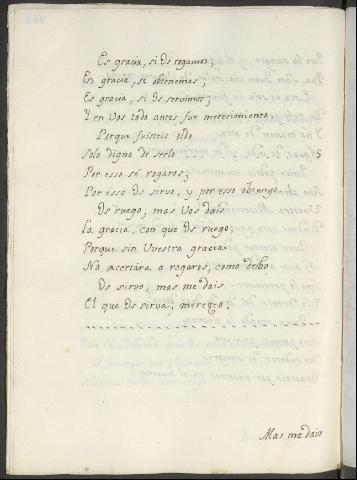 Es gracia, si ôs rogamos;
Es gracia, si obtenemos;
Es gracia, si ôs servimos;
Y en Vos todo antes fue merecimiento.
Porque fuisteis oido
Solo digno de serlo 5
Por esso sé rogaros;
Por esso ôs sirvo, y por esso obtengo.
Ôs ruego; mas Vos dais
La gracia, con que ôs ruego;
Porque sin Vuestra gracia
No acertára a rogaros, como debo
Ôs sirvo, mas me dais
El que ôs sirva; merezco;
Mas me dais